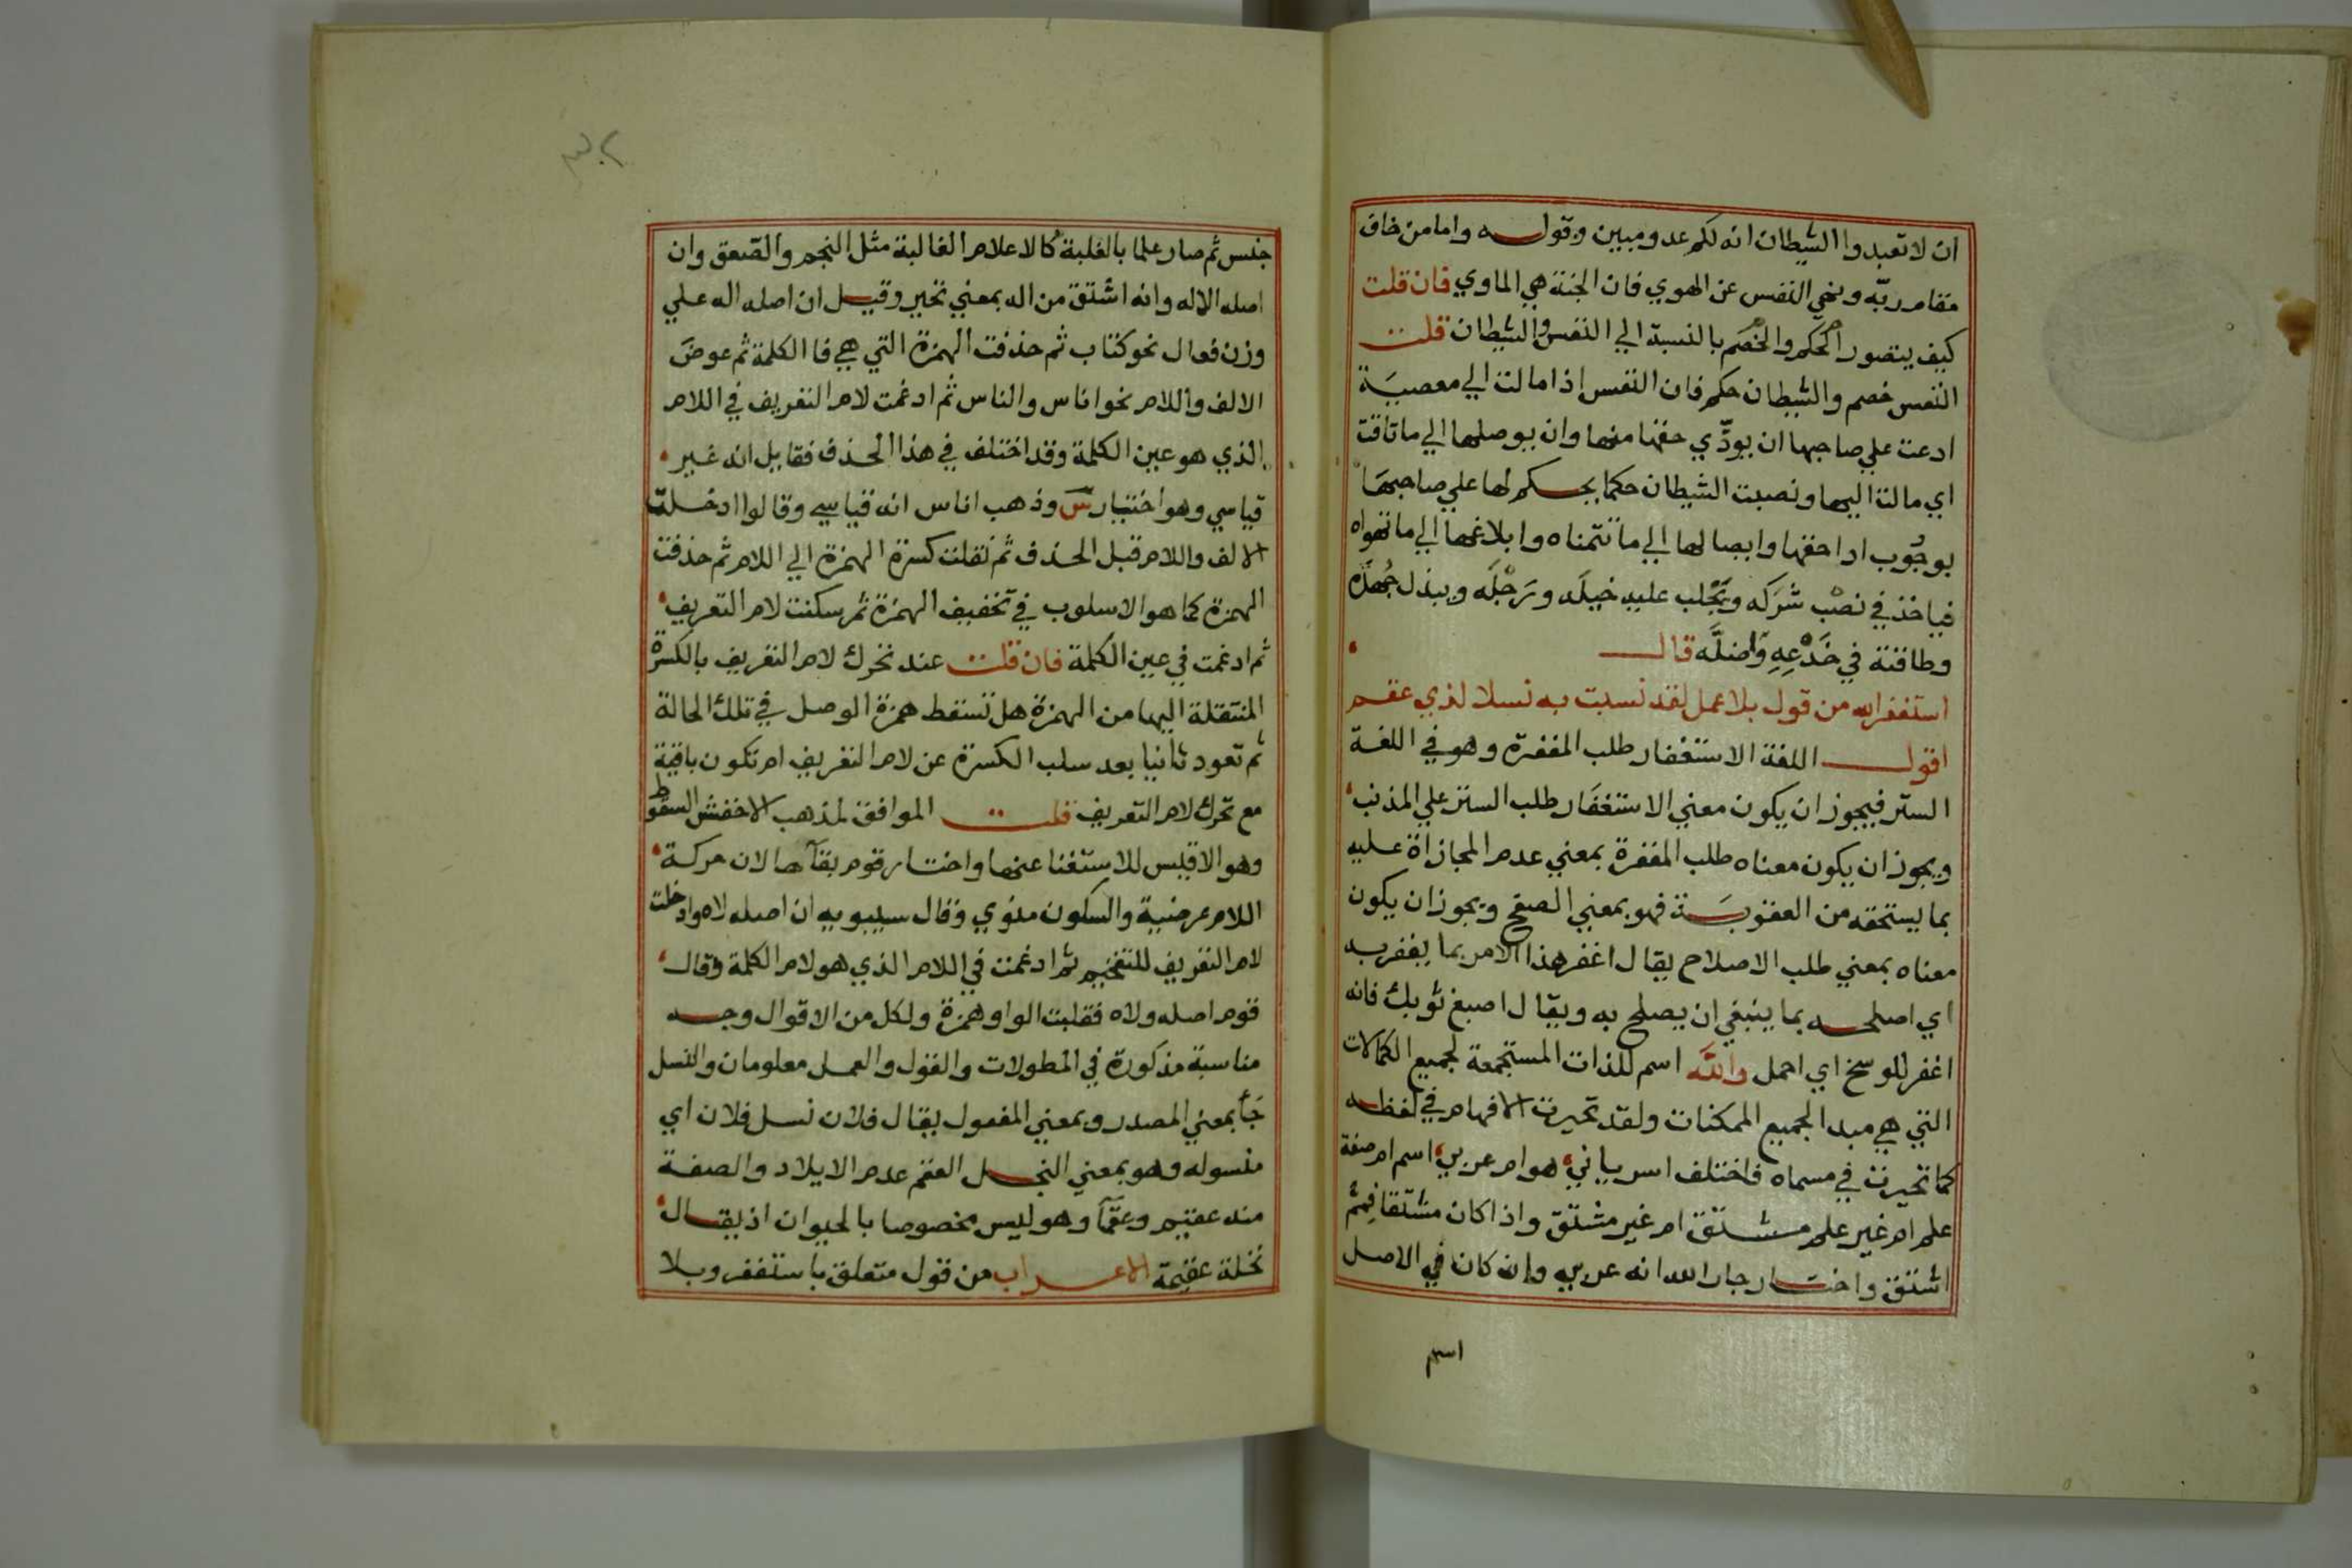 ان لا تعبدوا الشيطان انه لكم عدو مبين وقوله واما من خاف
مقام ربّه ونهي النفس عن الهوي فان الجنة هي الماوي فان قلت
كيف يتصور الحكم والخصم بالنسبة الي النفس والشيطان قلت
النفس خصم والشيطان حكم فان النفس اذا مالت الي معصية
ادعت علي صاحبها ان يودّي حقها منها وان يوصلها الي ما تاقت
اي مالت اليها ونصبت الشيطان حكما يحكم لها علي صاحبها
بوجوب ادا حقها وايصالها الي ما تتمناه وابلاغها الي ما تهواه
فياخذ في نصب شركه ويجلب عليه خيله ورجله ويبذل جهده
وطاقته في خدعه واضلّه قال
استغفر الله من قول بلا عمل لقد نسبت به نسلا لذي عقم
اقول اللغة الاستغفار طلب المغفرة وهو في اللغة
الستر فيجوز ان يكون معني الاستغفار طلب الستر علي المذنب
ويجوز ان يكون معناه طلب المغفرة بمعني عدم المجازاة عليه
بما يستحقه من العقوبة فهو بمعني الصفح ويجوز ان يكون
معناه بمعني طلب الاصلاح يقال اغفر هذا الامر بما يغفر به
اي اصلحه بما ينبغي ان يصلح به ويقال اصبغ ثوبك فانه
اغفر للوسخ اي احمل والله اسم للذات المستجمعة لجميع الكمالات
التي هي مبدا لجميع الممكنات ولقد تحيرت الافهام في لفظه
كما تحيرت في مسماه فاختلف اسرياني هو ام عربي اسم ام صفة
علم ام غير علم مشتق ام غير مشتق واذا كان مشتقا فمم
اشتق واختار جار الله انه عربي وانه كان في الاصل
اسم
٣٠٢
جنس ثم صار علما بالغلبة كالاعلام الغالبة مثل النجم والصّعق وان
اصله الاله وانه اشتق من اله بمعني تحير وقيل ان اصله اله علي
وزن فعال نحو كتاب ثم حذفت الهمزة التي هي فا الكلمة ثم عوض
الالف واللام نحو اناس والناس ثم ادغمت لام التعريف في اللام
الذي هو عين الكلمة وقد اختلف في هذا الحذف فقايل انه غير
قياسي وهو اختيار س وذهب اناس انه قياسي وقالوا ادخلت
الالف واللام قبل الحذف ثم نقلت كسرة الهمزة الي اللام ثم حذفت
الهمزة كما هو الاسلوب في تخفيف الهمزة ثم سكنت لام التعريف
ثم ادغمت في عين الكلمة فان قلت عند تحرك لام التعريف بالكسرة
المنتقلة اليها من الهمزة هل تسقط همزة الوصل في تلك الحالة
ثم تعود ثانيا بعد سلب الكسرة عن لام التعريف ام تكون باقية
مع تحرك لام التعريف قلت الموافق لمذهب الاخفش السقوط
وهو الاقيس للاستغنا عنها واختار قوم بقآها لان حركة
اللام عرضية والسكون منوي وقال سيبويه ان اصله لاه وادخلت
لام التعريف للتفخيم ثم ادغمت في اللام الذي هو لام الكلمة وقال
قوم اصله ولاه فقلبت الواو همزة ولكل من الاقوال وجه
مناسبة مذكورة في المطولات والقول والعمل معلومان والنسل
جأ بمعني المصدر وبمعني المفعول يقال فلان نسل فلان اي
منسوله وهو بمعني النجل العقم عدم الايلاد والصفة
منه عقيم وعقمآ وهو ليس مخصوصا بالحيوان اذ يقال
نخلة عقيمة الاعراب من قول متعلق باستغفر وبلا